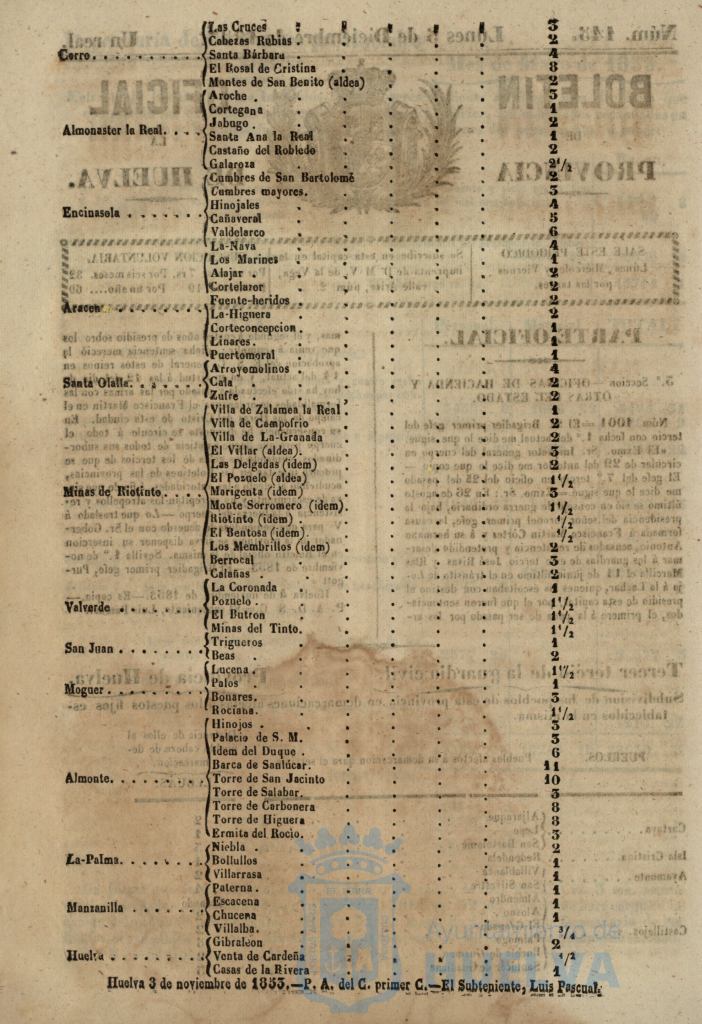 Las Cruces 3
Cabezas Rubias 2
Cerro. Santa Bárbara 4
El Rosal de Cristina 8
Montes de San Benito (aldea) 2
Aroche 3
Cortegana 1
Almonaster la Real. Jabugo 2
Santa Ana la Real 1
Castaño del Robledo 2
Galaroza 2 1/2
Cumbres de San Bartolomé 2
Cumbres mayores. 3
Encinasola Hinojales 4
Cañaveral 5
Valdelarco 6
La-Nava 4
Los Marines 1
Alajar 2
Cortelazor 2
Fuente-heridos 2
Aracena La-Higuera 2
Corteconcepcion. 1
Linares 1
Puertomoral 1
Arroyomolinos 4
Santa Olalla. Cala 2
Zufre 2
Villa de Zalamea la Real 1
Villa de Campofrio 2
Villa de La-Granada 2
El Villar (aldea). 3
Las Delgadas (idem) 2
El Pozuelo (aldea) 1 1/2
Minas de Riotinto. Marigenta (idem) 3
Monte Sorromero (idem). 1/2
Riotinto (idem) 1/2
El Bentosa (idem). 1/2
Los Membrillos (idem) 2
Berrocal 3
Calañas 2
La Coronada 1
Valverde Pozuelo 1 1/2
El Butron 1 1/2
Minas del Tinto. 1 1/2
San Juan Trigueros 1
Beas 2
Lucena. 1 1/2
Moguer. Palos 1
Bonares. 3
Rociana. 1 1/2
Hinojos 3
Palacio de S. M. 3
Idem del Duque 6
Barca de Sanlúcar. 11
Almonte. Torre de San Jacinto 10
Torre de Salabar. 3
Torre de Carbonera 8
Torre de Higuera 8
Ermita del Rocio. 3
Niebla 2
La-Palma. Bollullos 1
Villarrasa 1
Paterna. 1
Manzanilla Escacena 1
Chucena 1
Villalba. 3/4
Gibraleon 2
Huelva Venta de Cardeña 1/2
Casas de la Rivera 1
Huelva 3 de noviembre de 1853.—P. A. del C. primer C.—El Subteniente, Luis Pascual.
Ayuntamiento de
HUELVA